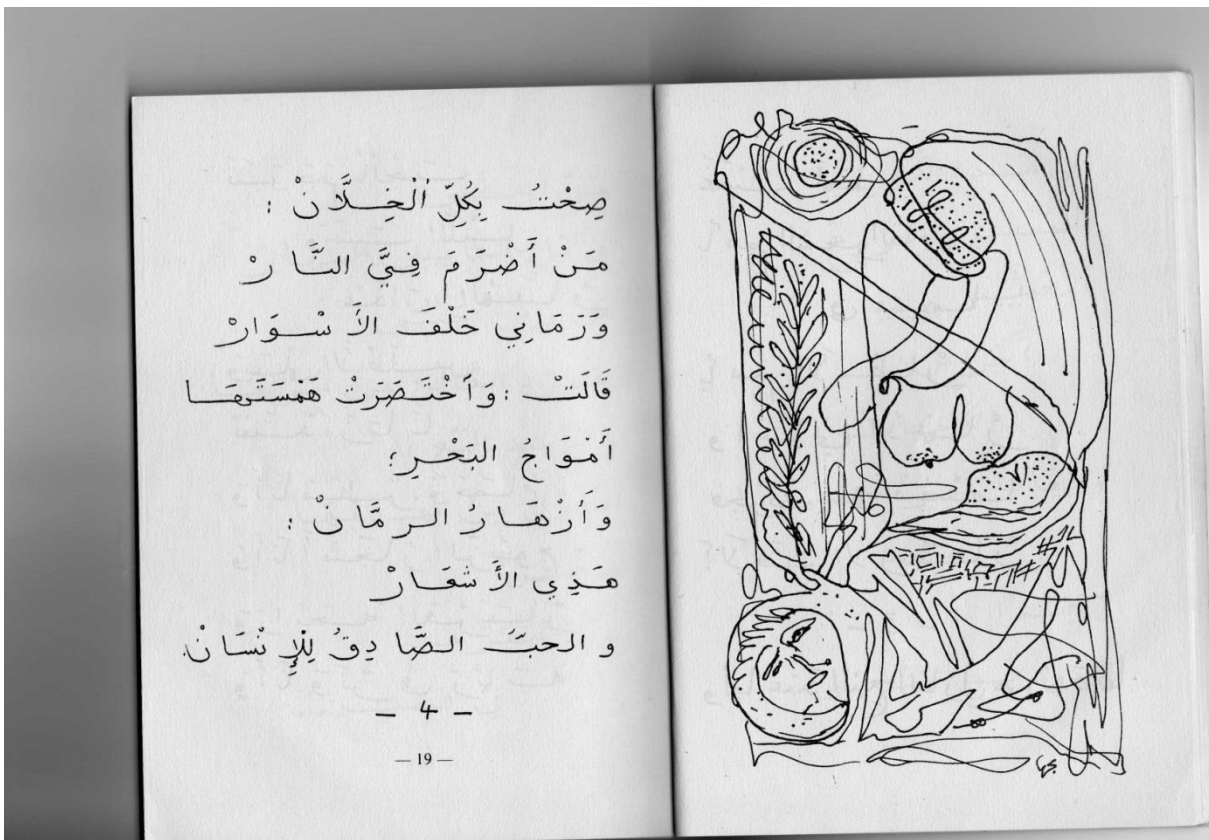 صِحْتُ بِكُلِّ الْخِلَّانْ :
مَنْ أَضْرَمَ فِيَّ النَّارْ
وَرَمَانِي خَلْفَ الأَسْوَارْ
قَالَتْ : وَاخْتَصَرَتْ هَمْسَتَهَا
أَمْوَاجُ البَحْرِ؛
وَأَزْهَارُ الرمَّانْ :
هَذِي الأَشْعَارْ
و الحبُّ الصَّادِقُ لِلْإِنْسَانْ.
— 4 —
— 19 —